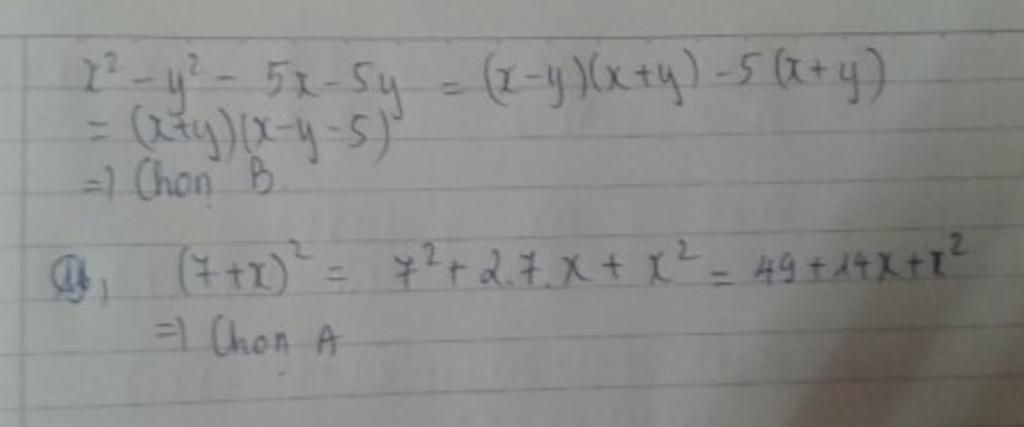 x² - y² - 5x - 5y = (x-y)(x+y) - 5(x+y)
= (x+y)(x-y-5)
=) Chọn B.
, (7+x)² = 7² + 2.7.x + x² = 49 + 14x + x²
=) Chọn A